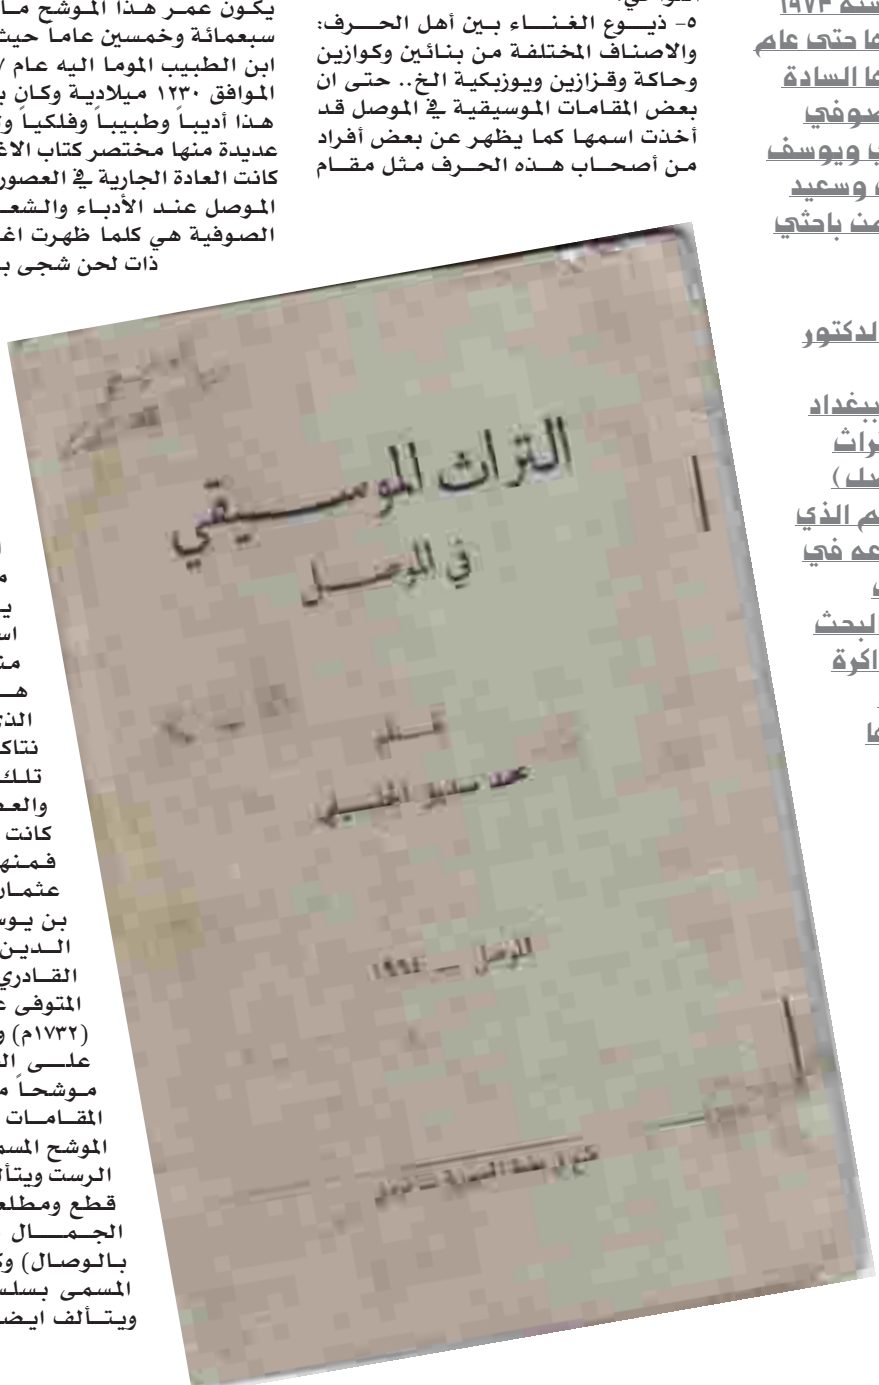 سنة ١٩٧٣
ما حتى عام
ما السادة
صوفي
ب ويوسف
وسعيد
من باحثي
لدكتور
ببغداد
تراث
صل)
م الذي
عه في
لبحث
اكرة
ما
٥- ذيـــوع الغنـــاء بـين أهل الحـــرف:
والاصناف المختلفة من بنائين وكوازين
وحاكة وقـزازين ويوزبكية الخ.. حتى ان
بعض المقامات الموسيقية في الموصل قد
أخذت اسمها كما يظهر عن بعض أفراد
من أصحــاب هــذه الحـرف مثل مقــام
يكون عمـر هـذا الموشح مـا
سبعمائة وخمسين عاما حيث
ابن الطبيب الموما اليه عام
الموافق ١٢٣٠ ميلادية وكان ب
هـذا أديبـاً وطبيبـاً وفلكيـاً و
عديدة منها مختصر كتاب الاغ
كانت العادة الجارية في العصور
الموصل عنـد الأدبـاء والشعـ
الصوفية هي كلما ظهرت اغـ
ذات لحن شجى بـ
التراث الموســيقي
في الموصــل
بقــلم
محمد صديق الجليــلي
الموصل — ١٩٦٤
مـ
يـ
اسـ
منـ
هــ
الذي
نتاكـ
تلـك
والعـ
كانت
فـمنهـ
عثمـان
بن يـوسـ
الــدين
القـادري
المتوفى عـ
(١٧٣٢م) و
علــى ال
مـوشحـاً م
المقـامـات
الموشح المسمـ
الرست ويتألـ
قطع ومطلعـ
الجـمــال
بـالـوصال) وكـ
المسمى بـسلسـ
ويتــألف ايضـ